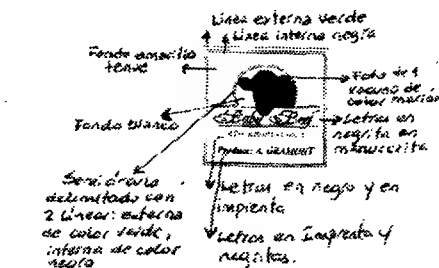 Línea externa verde
Línea interna negra
Fondo amarillo
tenue
Foto de 1
vacuno de
color marrón
Fondo blanco
Letras en
negrita en
manuscrita
Semi círculo
delimitado con
2 líneas: externa
de color verde,
interna de color
negro
Letras en negro y en
imprenta
Letras en Imprenta y
negritas.